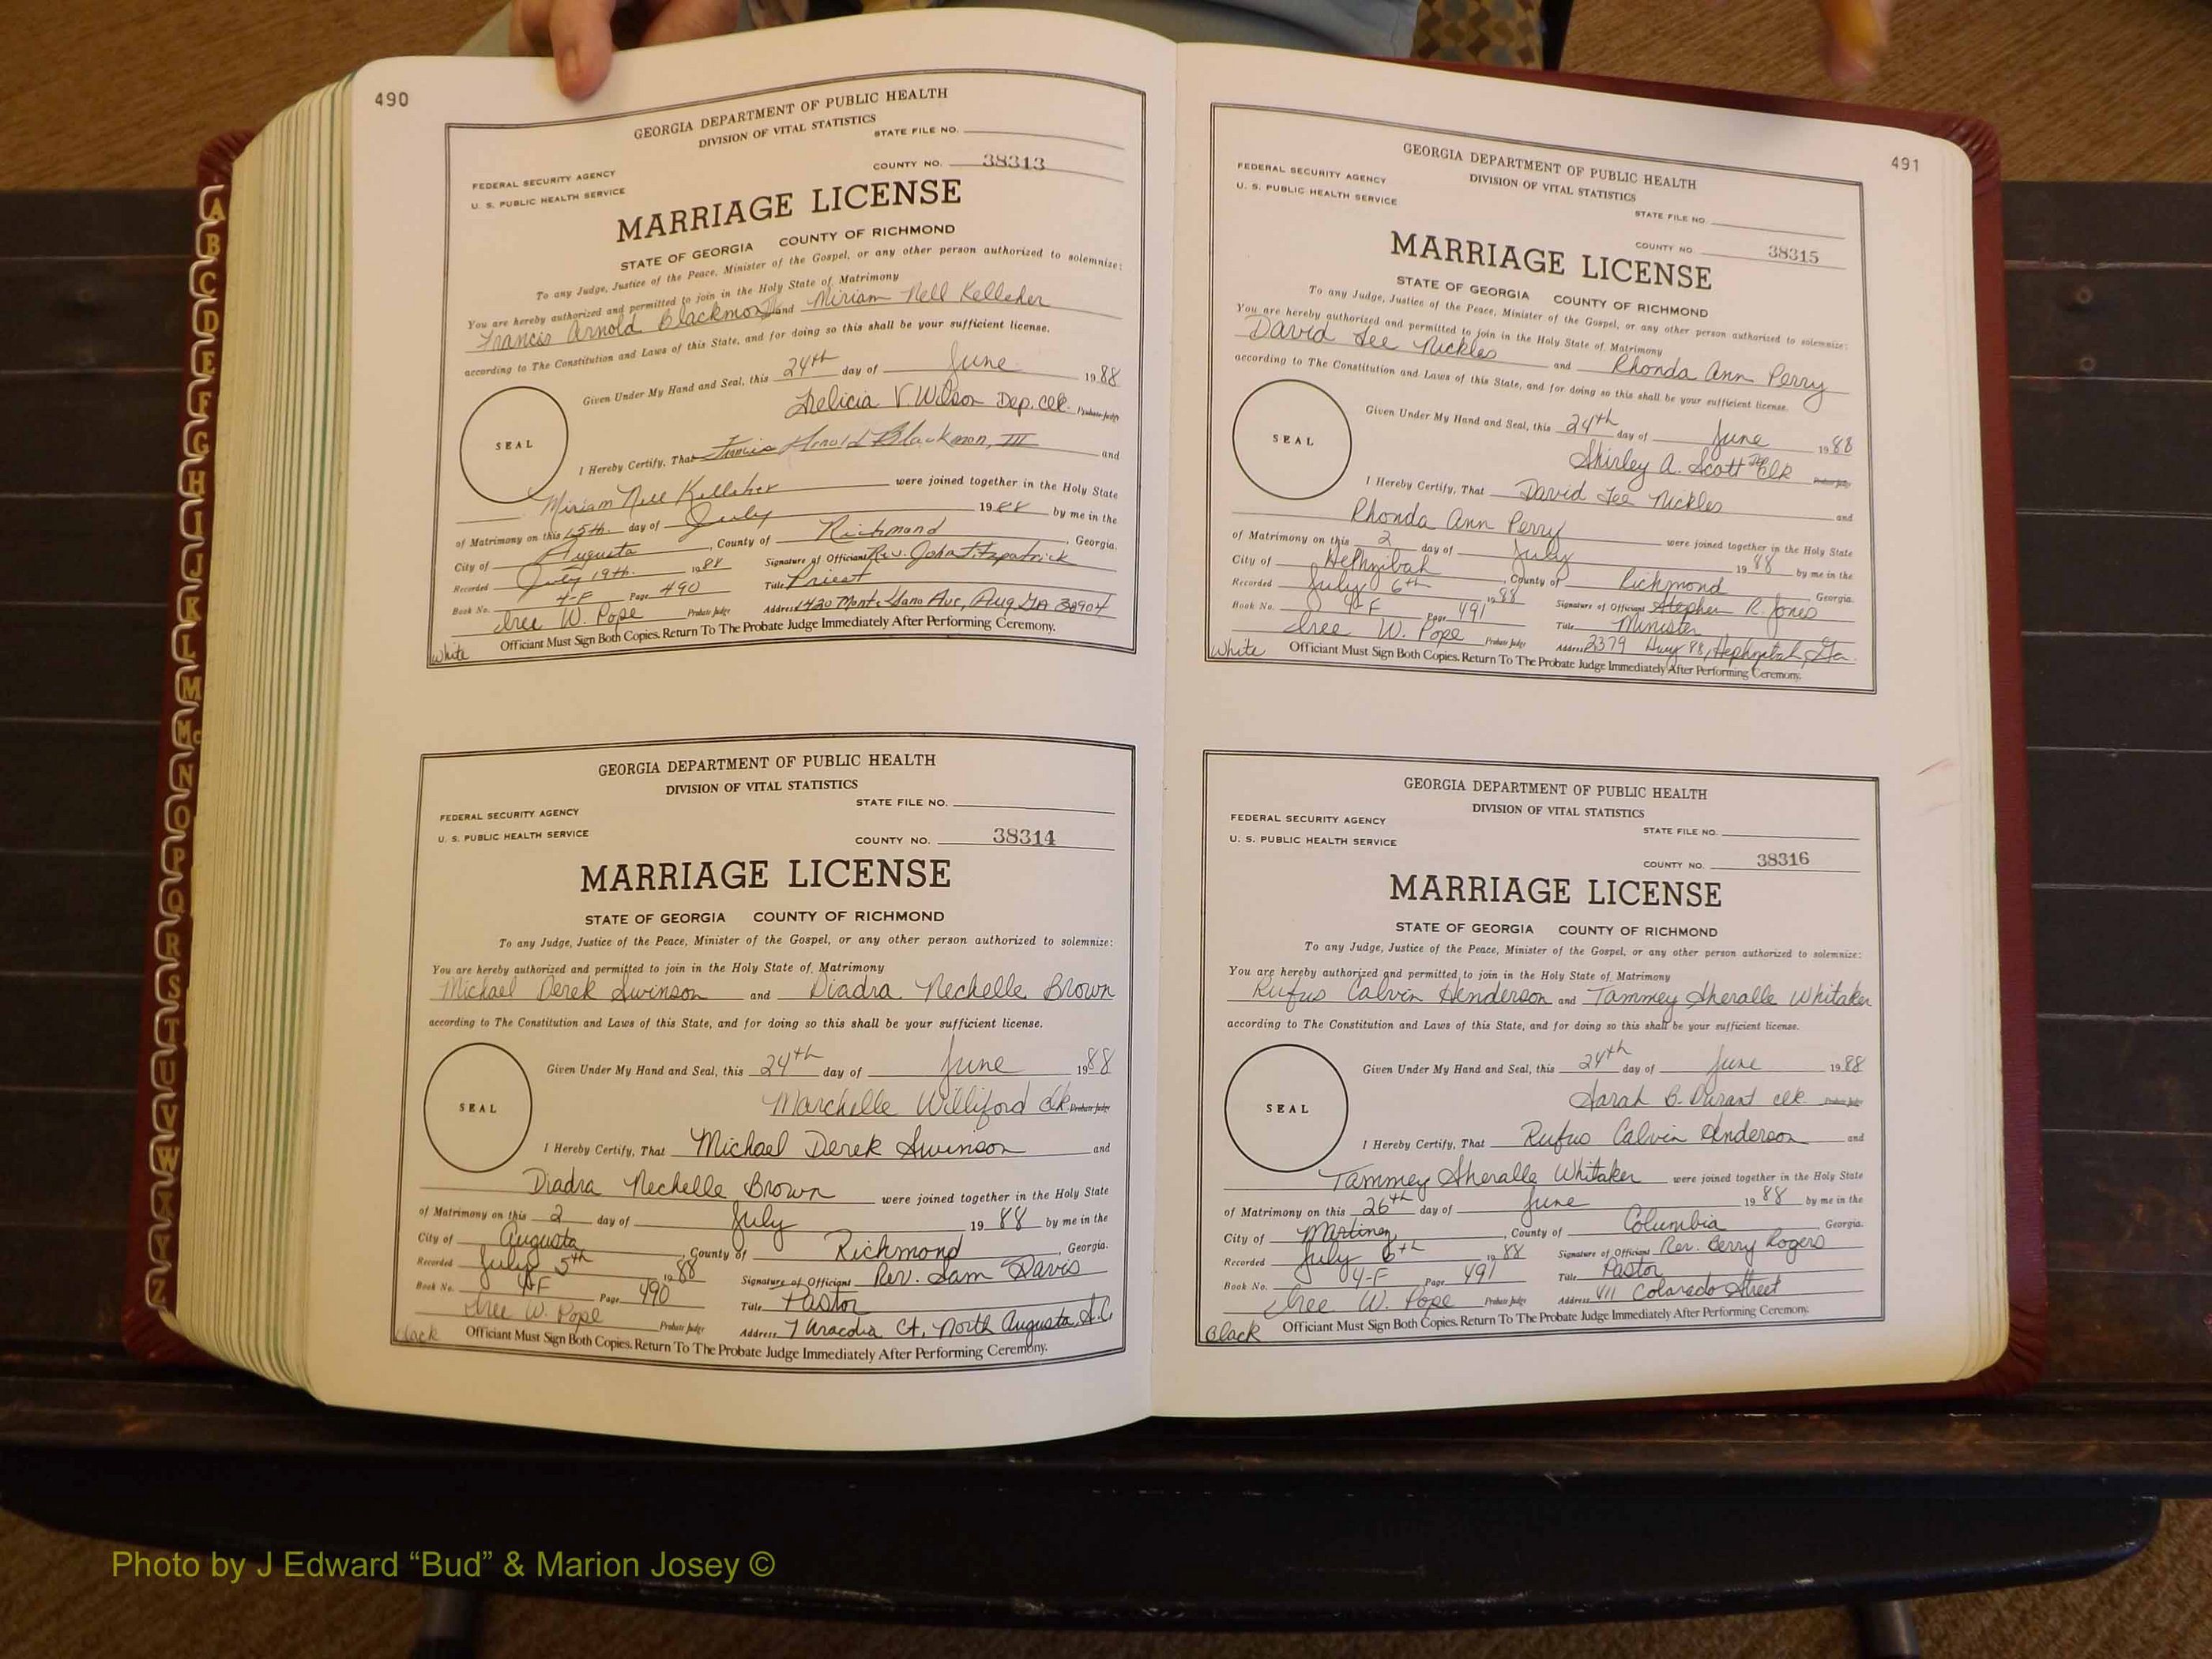 490
GEORGIA DEPARTMENT OF PUBLIC HEALTH
DIVISION OF VITAL STATISTICS
STATE FILE NO.
COUNTY NO. 38313
FEDERAL SECURITY AGENCY
U. S. PUBLIC HEALTH SERVICE
MARRIAGE LICENSE
STATE OF GEORGIA COUNTY OF RICHMOND
To any Judge, Justice of the Peace, Minister of the Gospel, or any other person authorized to solemnize:
You are hereby authorized and permitted to join in the Holy State of Matrimony
Francis Arnold Blackmon III and Miriam Nell Kelleher
according to The Constitution and Laws of this State, and for doing so this shall be your sufficient license.
Given Under My Hand and Seal, this 24th day of June 1988
V. Wilson Dep. clk. Probate Judge
SEAL
I Hereby Certify, That Francis Arnold Blackmon, III and
Miriam Nell Kelleher were joined together in the Holy State
of Matrimony on this 15th. day of July 1988 by me in the
City of Augusta, County of Richmond, Georgia.
Recorded July 19th. 1988 Signature of Officiant Rev. John Fitzpatrick
Book No. 4-F Page 490 Title Priest
W. Pope Probate Judge Address 1420 Monte Sano Ave, Aug GA 30904
Officiant Must Sign Both Copies. Return To The Probate Judge Immediately After Performing Ceremony.
White
GEORGIA DEPARTMENT OF PUBLIC HEALTH
DIVISION OF VITAL STATISTICS
STATE FILE NO.
FEDERAL SECURITY AGENCY
U. S. PUBLIC HEALTH SERVICE
COUNTY NO. 38314
MARRIAGE LICENSE
STATE OF GEORGIA COUNTY OF RICHMOND
To any Judge, Justice of the Peace, Minister of the Gospel, or any other person authorized to solemnize:
You are hereby authorized and permitted to join in the Holy State of Matrimony
Michael Derek Swinson and Diadra Nechelle Brown
according to The Constitution and Laws of this State, and for doing so this shall be your sufficient license.
Given Under My Hand and Seal, this 24th day of June 1988
Marchelle Williford Clk Probate Judge
SEAL
I Hereby Certify, That Michael Derek Swinson and
Diadra Nechelle Brown were joined together in the Holy State
of Matrimony on this 2 day of July 1988 by me in the
City of Augusta, County of Richmond, Georgia.
Recorded July 5th 1988 Signature of Officiant Rev. Sam Davis
Book No. 4-F Page 490 Title Pastor
W. Pope Probate Judge Address 7 Ct, North Augusta, S.C
Officiant Must Sign Both Copies. Return To The Probate Judge Immediately After Performing Ceremony.
491
GEORGIA DEPARTMENT OF PUBLIC HEALTH
DIVISION OF VITAL STATISTICS
STATE FILE NO.
FEDERAL SECURITY AGENCY
U. S. PUBLIC HEALTH SERVICE
COUNTY NO. 38315
MARRIAGE LICENSE
STATE OF GEORGIA COUNTY OF RICHMOND
To any Judge, Justice of the Peace, Minister of the Gospel, or any other person authorized to solemnize:
You are hereby authorized and permitted to join in the Holy State of Matrimony
David Lee Nickles and Rhonda Ann Perry
according to The Constitution and Laws of this State, and for doing so this shall be your sufficient license.
Given Under My Hand and Seal, this 24th day of June 1988
Shirley A. Scott Dep Clk Probate Judge
SEAL
I Hereby Certify, That David Lee Nickles and
Rhonda Ann Perry were joined together in the Holy State
of Matrimony on this 2 day of July 1988 by me in the
City of Hephzibah, County of Richmond Georgia.
Recorded July 6th 1988 Signature of Officiant Stephen R. Jones
Book No. 4-F Page 491 Title Minister
W. Pope Probate Judge Address 2379 Hwy 88, Hephzibah, Ga.
Officiant Must Sign Both Copies. Return To The Probate Judge Immediately After Performing Ceremony.
White
GEORGIA DEPARTMENT OF PUBLIC HEALTH
DIVISION OF VITAL STATISTICS
STATE FILE NO.
FEDERAL SECURITY AGENCY
U. S. PUBLIC HEALTH SERVICE
COUNTY NO. 38316
MARRIAGE LICENSE
STATE OF GEORGIA COUNTY OF RICHMOND
To any Judge, Justice of the Peace, Minister of the Gospel, or any other person authorized to solemnize:
You are hereby authorized and permitted to join in the Holy State of Matrimony
Rufus Calvin Henderson and Tammey Sheralle Whitaker
according to The Constitution and Laws of this State, and for doing so this shall be your sufficient license.
Given Under My Hand and Seal, this 24th day of June 1988
Sarah B. Durant clk Probate Judge
SEAL
I Hereby Certify, That Rufus Calvin Henderson and
Tammey Sheralle Whitaker were joined together in the Holy State
of Matrimony on this 26th day of June 1988 by me in the
City of Martinez, County of Columbia, Georgia.
Recorded July 6th 1988 Signature of Officiant Rev. Berry Rogers
Book No. 4-F Page 491 Title Pastor
W. Pope Probate Judge Address 411 Colorado Street
Officiant Must Sign Both Copies. Return To The Probate Judge Immediately After Performing Ceremony.
Black
A
B
C
D
E
F
G
H
I
J
K
L
M
Mc
N
O
P
Q
R
S
T
U
V
W
X
Y
Z
Photo by J Edward “Bud” & Marion Josey ©